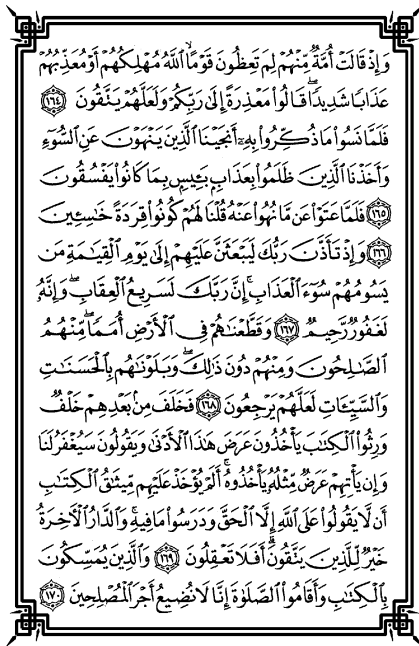 وَإِذۡ قَالَتۡ أُمَّةٞ مِّنۡهُمۡ لِمَ تَعِظُونَ قَوۡمًا ٱللَّهُ مُهۡلِكُهُمۡ أَوۡ مُعَذِّبُهُمۡ
عَذَابٗا شَدِيدٗاۖ قَالُواْ مَعۡذِرَةً إِلَىٰ رَبِّكُمۡ وَلَعَلَّهُمۡ يَتَّقُونَ ١٦٤
فَلَمَّا نَسُواْ مَا ذُكِّرُواْ بِهِۦٓ أَنجَيۡنَا ٱلَّذِينَ يَنۡهَوۡنَ عَنِ ٱلسُّوٓءِ
وَأَخَذۡنَا ٱلَّذِينَ ظَلَمُواْ بِعَذَابِۭ بَـِٔيسِۭ بِمَا كَانُواْ يَفۡسُقُونَ
١٦٥ فَلَمَّا عَتَوۡاْ عَن مَّا نُهُواْ عَنۡهُ قُلۡنَا لَهُمۡ كُونُواْ قِرَدَةً خَٰسِـِٔينَ
١٦٦ وَإِذۡ تَأَذَّنَ رَبُّكَ لَيَبۡعَثَنَّ عَلَيۡهِمۡ إِلَىٰ يَوۡمِ ٱلۡقِيَٰمَةِ مَن
يَسُومُهُمۡ سُوٓءَ ٱلۡعَذَابِۗ إِنَّ رَبَّكَ لَسَرِيعُ ٱلۡعِقَابِۖ وَإِنَّهُۥ
لَغَفُورٞ رَّحِيمٞ ١٦٧ وَقَطَّعۡنَٰهُمۡ فِي ٱلۡأَرۡضِ أُمَمٗاۖ مِّنۡهُمُ
ٱلصَّٰلِحُونَ وَمِنۡهُمۡ دُونَ ذَٰلِكَۖ وَبَلَوۡنَٰهُم بِٱلۡحَسَنَٰتِ
وَٱلسَّيِّـَٔاتِ لَعَلَّهُمۡ يَرۡجِعُونَ ١٦٨ فَخَلَفَ مِنۢ بَعۡدِهِمۡ خَلۡفٞ
وَرِثُواْ ٱلۡكِتَٰبَ يَأۡخُذُونَ عَرَضَ هَٰذَا ٱلۡأَدۡنَىٰ وَيَقُولُونَ سَيُغۡفَرُ لَنَا
وَإِن يَأۡتِهِمۡ عَرَضٞ مِّثۡلُهُۥ يَأۡخُذُوهُۚ أَلَمۡ يُؤۡخَذۡ عَلَيۡهِم مِّيثَٰقُ ٱلۡكِتَٰبِ
أَن لَّا يَقُولُواْ عَلَى ٱللَّهِ إِلَّا ٱلۡحَقَّ وَدَرَسُواْ مَا فِيهِۗ وَٱلدَّارُ ٱلۡأٓخِرَةُ
خَيۡرٞ لِّلَّذِينَ يَتَّقُونَۚ أَفَلَا تَعۡقِلُونَ ١٦٩ وَٱلَّذِينَ يُمَسِّكُونَ
بِٱلۡكِتَٰبِ وَأَقَامُواْ ٱلصَّلَوٰةَ إِنَّا لَا نُضِيعُ أَجۡرَ ٱلۡمُصۡلِحِينَ ١٧٠